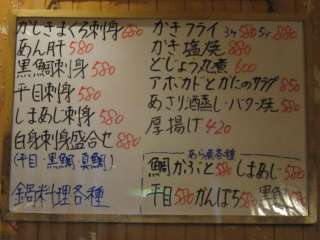 かじきまぐろ刺身 680
あん肝 580
黒鯛刺身 580
平目刺身 580
しまあじ刺身 680
白身刺身盛合せ 880
(平目・黒鯛 真鯛)
鍋料理各種
かきフライ 3ヶ 580 5ヶ 880
かき塩焼 880
どじょう丸煮 600
アボカドとかにのサラダ 850
あさり酒蒸し・バター焼 580
厚揚げ 420
あら煮各種
鯛かぶと 580 しまあじ 580
平目 580 かんぱち 580 黒鯛